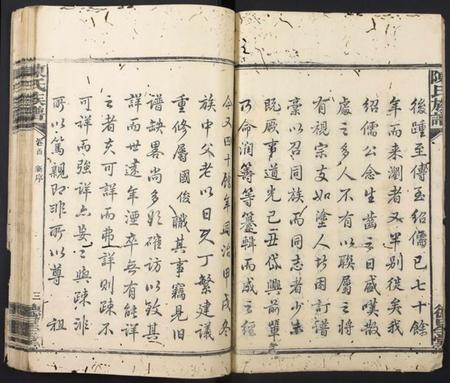 陳氏族譜
後踵至傅至紹儒已七十餘
年而來瀏者又畢別從矣我
紹儒公念生齒之日盛嘆散
處之多人不有以聯屬之將
有視宗支如塗人者因訂譜
稾以召族而同志者少
既厥事道光己丑歲與前輩
乃命潤籌等纂輯而成之經
今又四十餘年同治甲戌冬
族中父老以日久丁繁建議
重修屬國俊識其事竊見旧
譜缺畧尚多颇確訪以致其
詳而世遠年湮卒無有能詳
之者夫可詳而弗詳則疎不
可詳而強詳亦妄妄與疎非
所以篤親即非所以尊 祖
陳氏族譜
卷首 新序
三